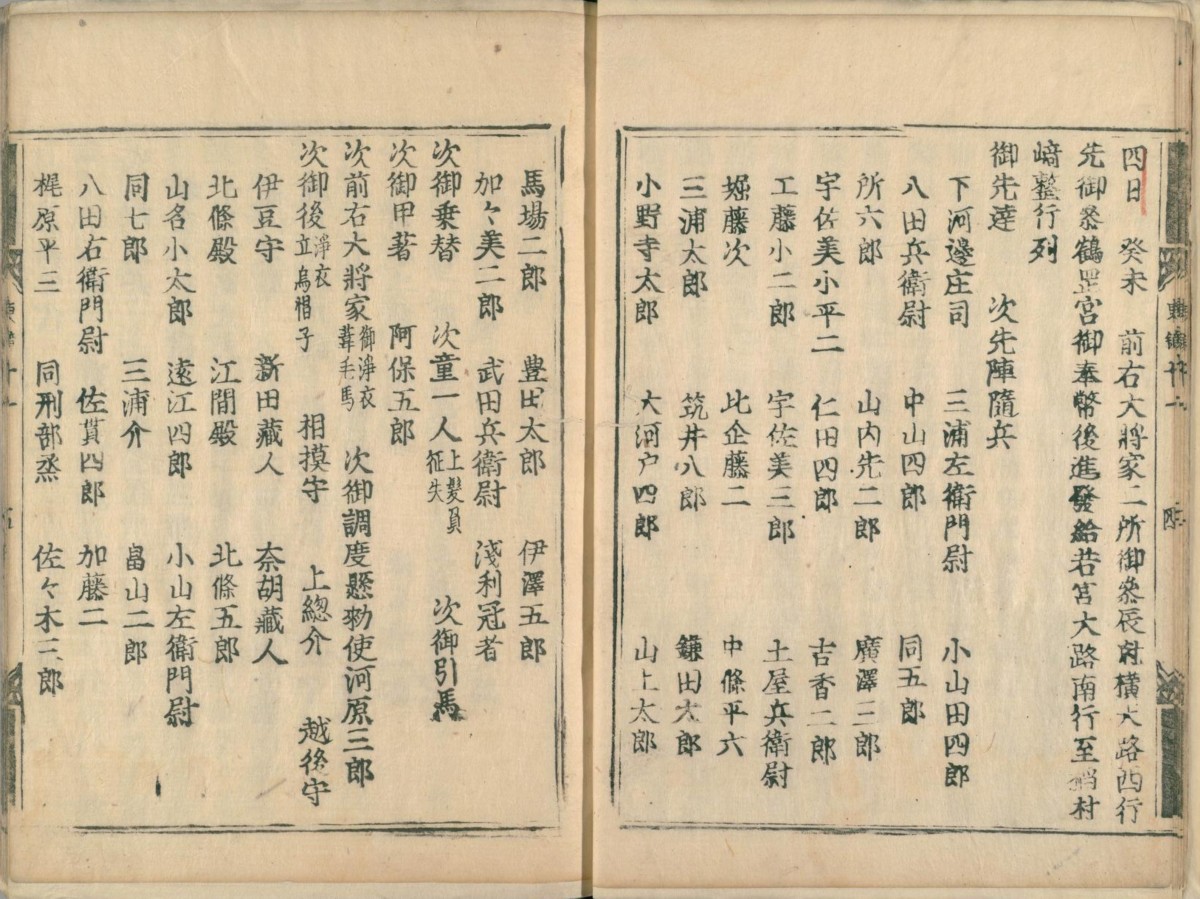 四日　癸未　前右大將家二所御參辰尅横大路西行
先御參鶴岡宮御奉幣後進發給若宮大路南行至稻村
﨑整行列
御先達　次先陣隨兵
下河邊庄司　三浦左衛門尉　小山田四郎
八田兵衛尉　中山四郎　同五郎
所六郎　山内先二郎　廣澤三郎
宇佐美小平二　仁田四郎　吉香二郎
工藤小二郎　宇佐美三郎　土屋兵衛尉
堀藤次　比企藤二　中條平六
三浦太郎　筑井八郎　鎌田太郎
小野寺太郎　大河戸四郎　山上太郎
馬場二郎　豊田太郎　伊澤五郎
加々美二郎　武田兵衛尉　淺利冠者
次御乗替　次童一人上髪員征矢　次御引馬
次御甲著　阿保五郎
次前右大將家御淨衣葦毛馬　次御調度懸勅使河原三郎
次御後淨衣立烏帽子　相摸守　上總介　越後守
伊豆守　新田藏人　奈胡藏人
北條殿　江間殿　北條五郎
山名小太郎　遠江四郎　小山左衛門尉
同七郎　三浦介　畠山二郎
八田右衛門尉　佐貫四郎　加藤二
梶原平三　同刑部烝　佐々木三郎